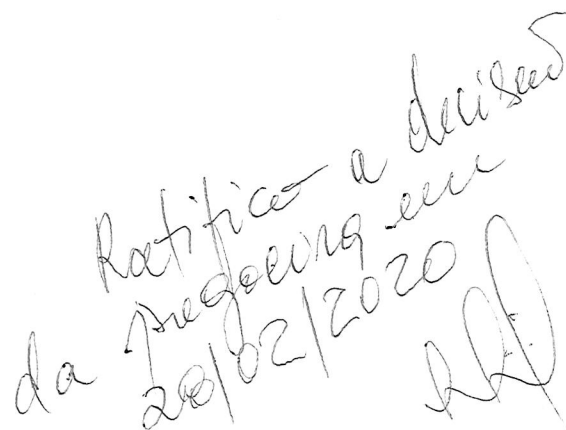 Ratifico a decisão
da pregoeira em
28/02/2020